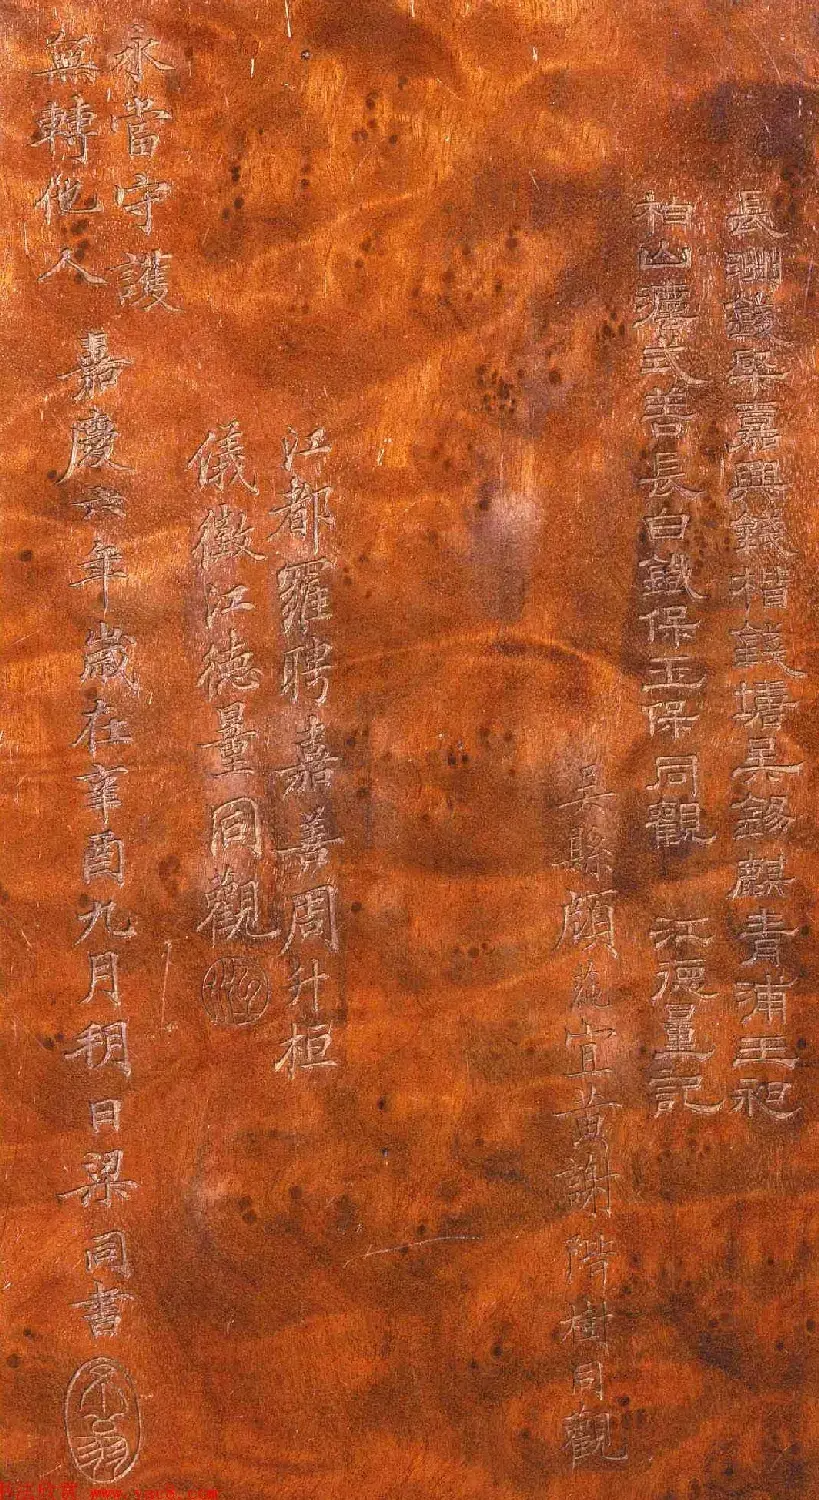 長洲錢棨嘉興錢楷錢塘吳錫麒青浦王昶
柏山瓊弍善長白鐵保玉保同觀 江德量記
吳縣顧蒓宜黃謝階樹同觀
江都羅聘嘉善周升桓
儀徵江德量同觀
永當守護
無轉他人
嘉慶六年歲在辛酉九月朔日梁同書
不翁
www.yac8.com